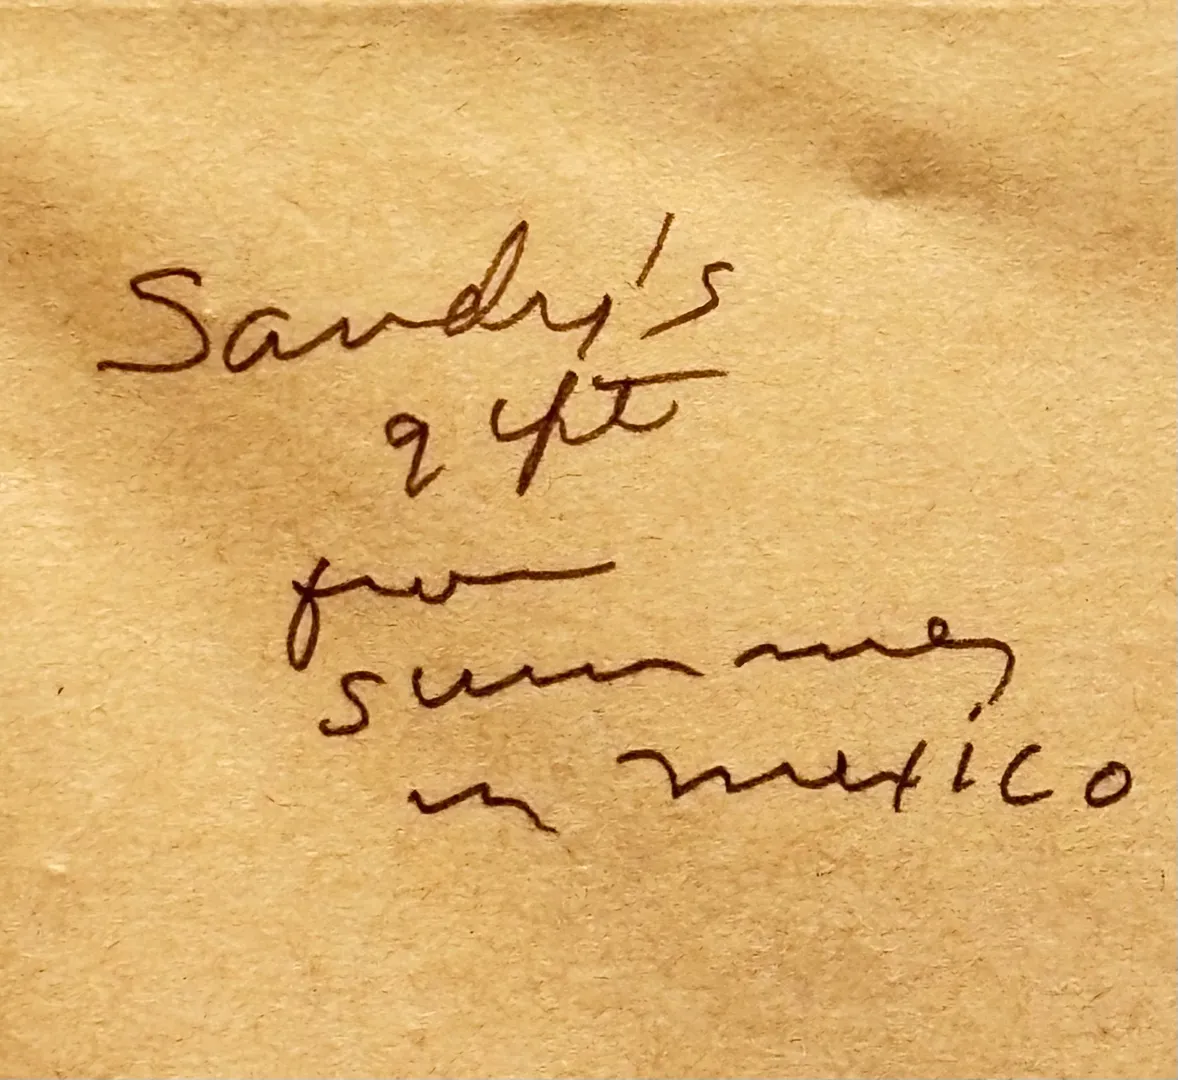 Sandy's
gift
from
summer
in mexico